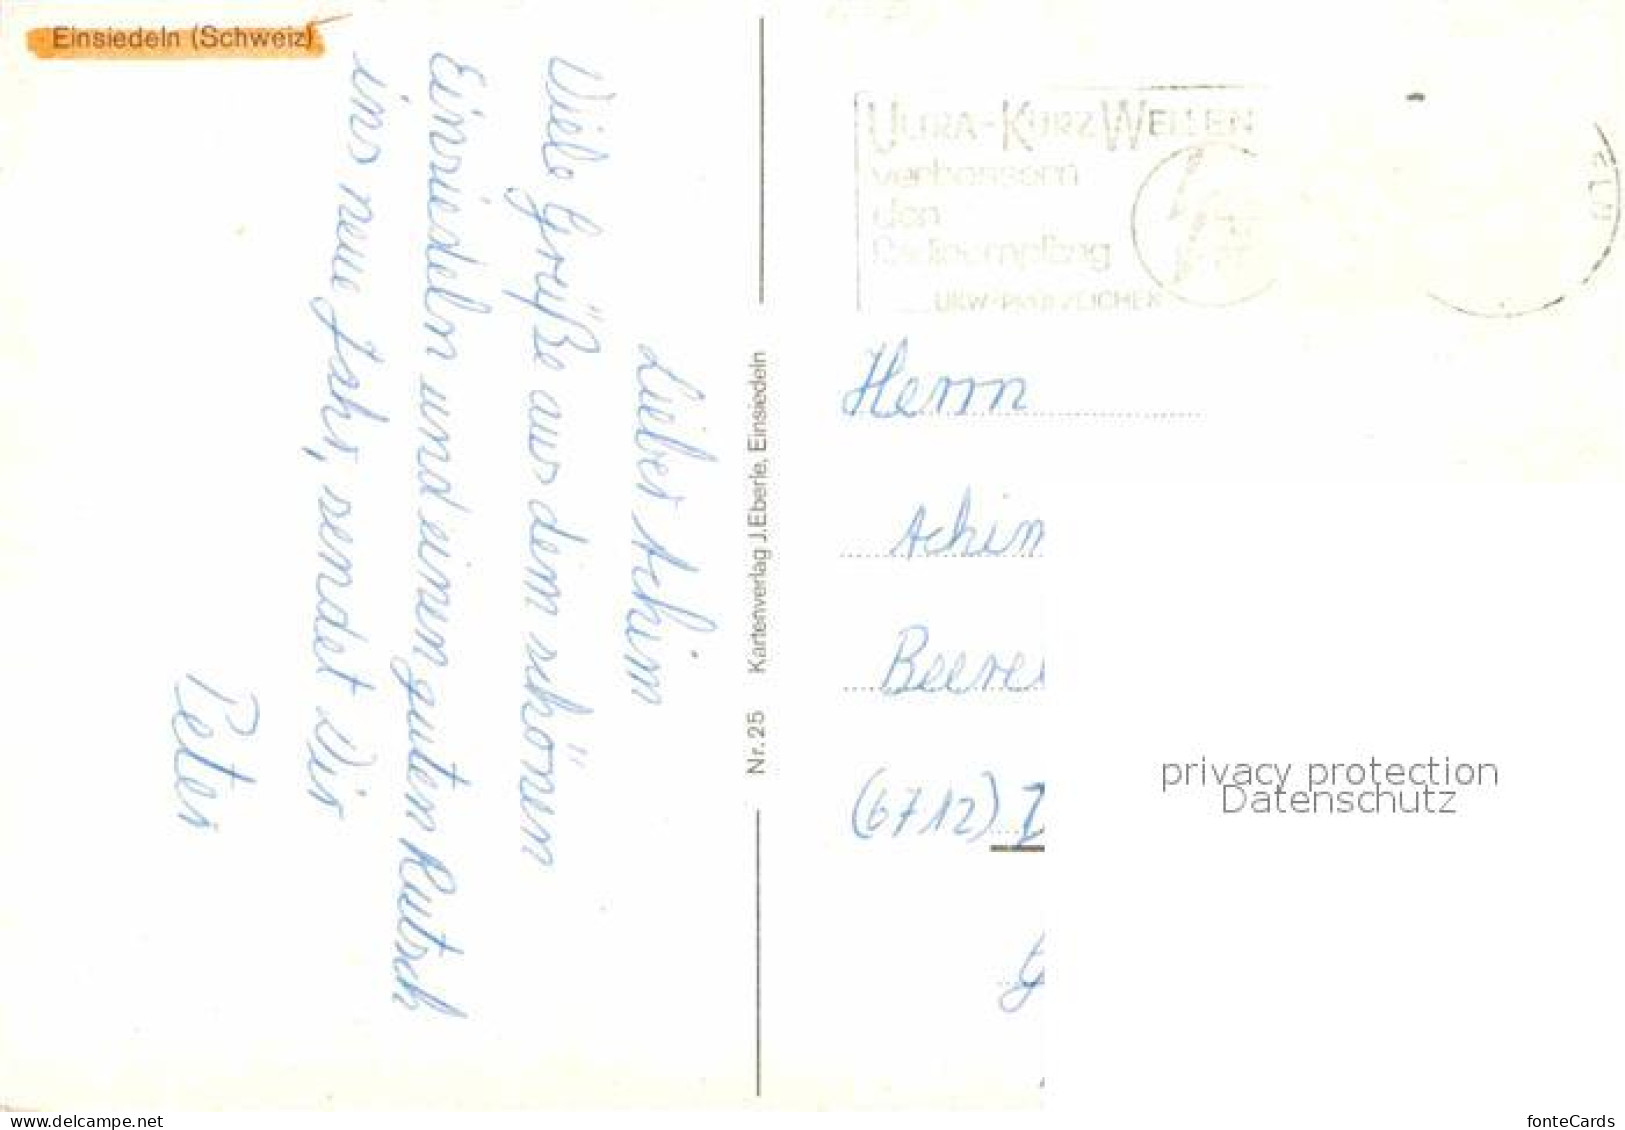 Einsiedeln (Schweiz)
Lieber Achim
Viele Grüße aus dem schönen
Einsiedeln und einen guten Rutsch
ins neue Jahr, sendet Dir
Peter
Nr. 25 Kartenverlag J. Eberle, Einsiedeln
ULTRA-KURZWELLEN
verbessern
den
Radioempfang
UKW-
Herrn
Achim
Beere
(6712)
privacy protection
Datenschutz
www.delcampe.net
fonteCards